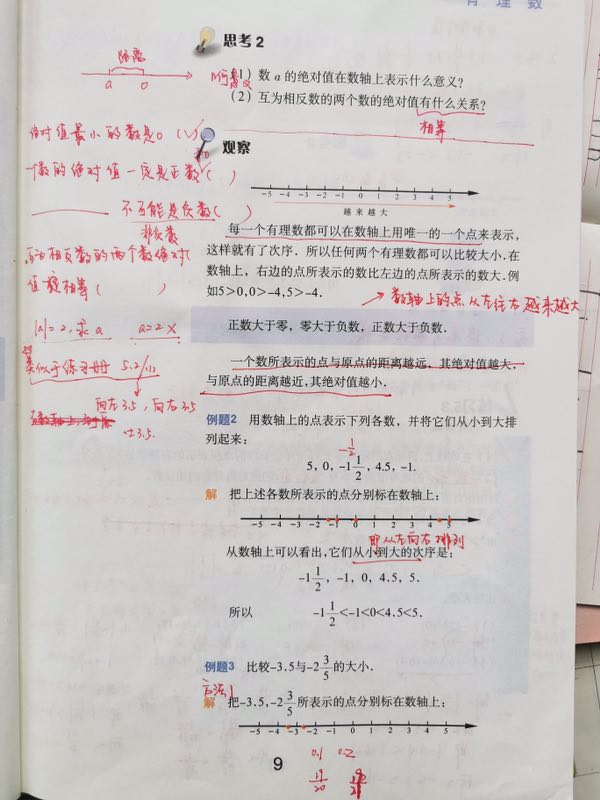 有理数
思考2
距离
a 0
(1) 数 a 的绝对值在数轴上表示什么意义?
(2) 互为相反数的两个数的绝对值有什么关系?
相等
绝对值最小的数是0 (√)
观察
一个数的绝对值一定是正数( )
-5 -4 -3 -2 -1 0 1 2 3 4 5
越来越大
不可能是负数( )
非负数
每一个有理数都可以在数轴上用唯一的一个点来表示,
互为相反数的两个数绝对
这样就有了次序. 所以任何两个有理数都可以比较大小. 在
数轴上, 右边的点所表示的数比左边的点所表示的数大. 例
值相等( )
如5>0,0>-4,5>-4.
数轴上的点从左往右越来越大
|a|=2,求a a=2 ×
正数大于零, 零大于负数, 正数大于负数.
类似于练习册 5.2/(1)
一个数所表示的点与原点的距离越远, 其绝对值越大,
与原点的距离越近,其绝对值越小.
向左3.5, 向右3.5
±3.5.
例题2 用数轴上的点表示下列各数, 并将它们从小到大排
列起来:
-1/2
5, 0, -1 1/2, 4.5, -1.
解 把上述各数所表示的点分别标在数轴上:
-5 -4 -3 -2 -1 0 1 2 3 4 5
即从左向右排列
从数轴上可以看出,它们从小到大的次序是:
-1 1/2, -1, 0, 4.5, 5.
所以 -1 1/2<-1<0<4.5<5.
例题3 比较-3.5与-2 3/5的大小.
方法1
解 把-3.5,-2 3/5所表示的点分别标在数轴上:
-5 -4 -3 -2 -1 0 1 2 3 4 5
0.1 0.2
9
19/20